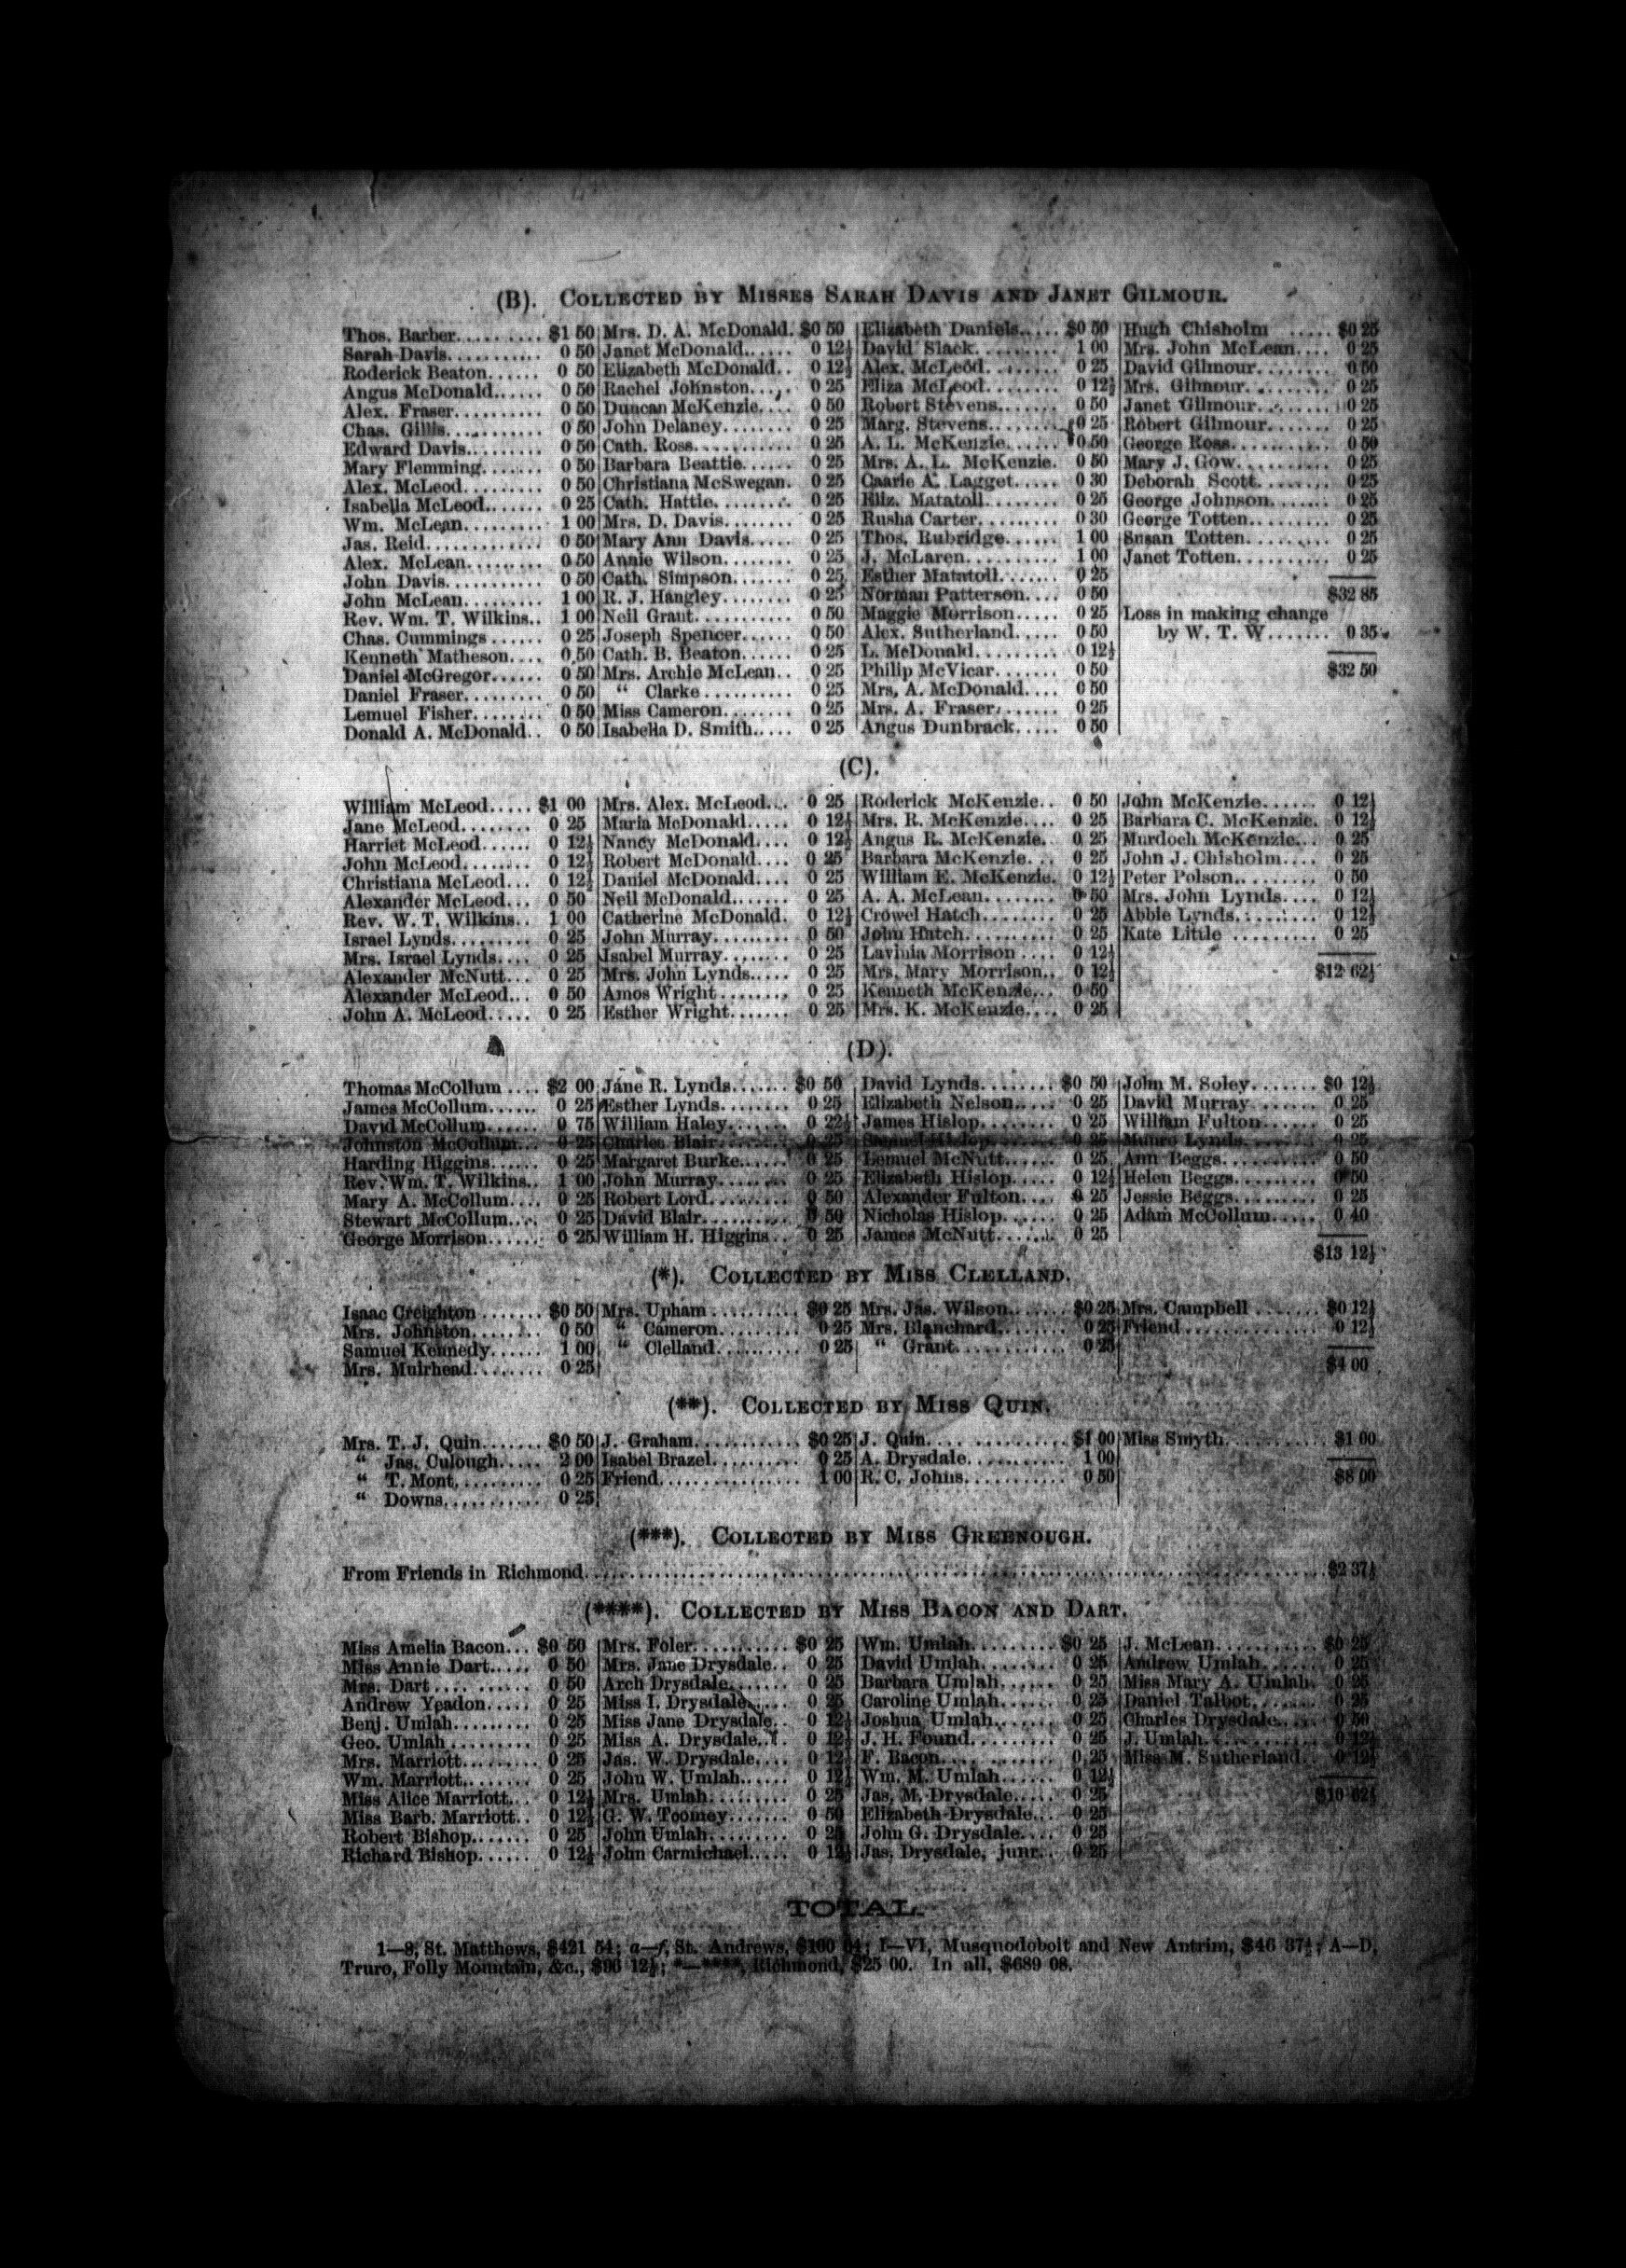 (B). COLLECTED BY MISSES SARAH DAVIS AND JANET GILMOUR.
Thos. Barber.......... $1 50
Sarah Davis........... 0 50
Roderick Beaton...... 0 50
Angus McDonald...... 0 50
Alex. Fraser.......... 0 50
Chas. Gillis........... 0 50
Edward Davis......... 0 50
Mary Flemming....... 0 50
Alex. McLeod......... 0 50
Isabella McLeod....... 0 25
Wm. McLean......... 1 00
Jas. Reid............. 0 50
Alex. McLean......... 0 50
John Davis........... 0 50
John McLean......... 1 00
Rev. Wm. T. Wilkins.. 1 00
Chas. Cummings...... 0 25
Kenneth Matheson.... 0 50
Daniel McGregor...... 0 50
Daniel Fraser......... 0 50
Lemuel Fisher........ 0 50
Donald A. McDonald.. 0 50
Mrs. D. A. McDonald. $0 50
Janet McDonald...... 0 12½
Elizabeth McDonald.. 0 12½
Rachel Johnston..... 0 25
Duncan McKenzie.... 0 50
John Delaney........ 0 25
Cath. Ross........... 0 25
Barbara Beattie...... 0 25
Christiana McSwegan. 0 25
Cath. Hattie......... 0 25
Mrs. D. Davis........ 0 25
Mary Ann Davis..... 0 25
Annie Wilson........ 0 25
Cath. Simpson....... 0 25
R. J. Hangley........ 0 25
Neil Grant........... 0 50
Joseph Spencer...... 0 50
Cath. B. Beaton...... 0 25
Mrs. Archie McLean.. 0 25
“ Clarke.......... 0 25
Miss Cameron........ 0 25
Isabella D. Smith..... 0 25
Elizabeth Daniels..... $0 50
David Slack......... 1 00
Alex. McLeod........ 0 25
Eliza McLeod........ 0 12½
Robert Stevens....... 0 50
Marg. Stevens........ 0 25
A. L. McKenzie...... 0 50
Mrs. A. L. McKenzie. 0 50
Caarie A. Lagget..... 0 30
Eliz. Matatoll........ 0 25
Rusha Carter......... 0 30
Thos. Rubridge...... 1 00
J. McLaren.......... 1 00
Esther Matatoll....... 0 25
Norman Patterson.... 0 50
Maggie Morrison..... 0 25
Alex. Sutherland..... 0 50
L. McDonald......... 0 12½
Philip McVicar....... 0 50
Mrs. A. McDonald.... 0 50
Mrs. A. Fraser....... 0 25
Angus Dunbrack..... 0 50
Hugh Chisholm ..... $0 25
Mrs. John McLean.... 0 25
David Gilmour........ 0 50
Mrs. Gilmour......... 0 25
Janet Gilmour........ 0 25
Robert Gilmour....... 0 25
George Ross.......... 0 50
Mary J. Gow.......... 0 25
Deborah Scott........ 0 25
George Johnson....... 0 25
George Totten......... 0 25
Susan Totten......... 0 25
Janet Totten.......... 0 25
$32 85
Loss in making change
by W. T. W....... 0 35
$32 50
(C).
William McLeod..... $1 00
Jane McLeod........ 0 25
Harriet McLeod...... 0 12½
John McLeod........ 0 12½
Christiana McLeod... 0 12½
Alexander McLeod... 0 50
Rev. W. T. Wilkins.. 1 00
Israel Lynds......... 0 25
Mrs. Israel Lynds.... 0 25
Alexander McNutt... 0 25
Alexander McLeod... 0 50
John A. McLeod..... 0 25
Mrs. Alex. McLeod... 0 25
Maria McDonald..... 0 12½
Nancy McDonald.... 0 12½
Robert McDonald.... 0 25
Daniel McDonald.... 0 25
Neil McDonald....... 0 25
Catherine McDonald. 0 12½
John Murray......... 0 50
Isabel Murray........ 0 25
Mrs. John Lynds..... 0 25
Amos Wright........ 0 25
Esther Wright....... 0 25
Roderick McKenzie.. 0 50
Mrs. R. McKenzie.... 0 25
Angus R. McKenzie. 0 25
Barbara McKenzie... 0 25
William E. McKenzie. 0 12½
A. A. McLean........ 0 50
Crowel Hatch........ 0 25
John Hatch.......... 0 25
Lavinia Morrison.... 0 12½
Mrs. Mary Morrison.. 0 12½
Kenneth McKenzie... 0 50
Mrs. K. McKenzie.... 0 25
John McKenzie...... 0 12½
Barbara C. McKenzie. 0 12½
Murdoch McKenzie... 0 25
John J. Chisholm.... 0 25
Peter Polson......... 0 50
Mrs. John Lynds.... 0 12½
Abbie Lynds......... 0 12½
Kate Little ......... 0 25
$12 62½
(D).
Thomas McCollum.... $2 00
James McCollum...... 0 25
David McCollum...... 0 75
Johnston McCollum... 0 25
Harding Higgins...... 0 25
Rev. Wm. T. Wilkins.. 1 00
Mary A. McCollum.... 0 25
Stewart McCollum.... 0 25
George Morrison...... 0 25
Jane R. Lynds....... $0 50
Esther Lynds........ 0 25
William Haley....... 0 22½
Charles Blair........ 0 25
Margaret Burke...... 0 25
John Murray........ 0 25
Robert Lord......... 0 50
David Blair.......... 0 50
William H. Higgins.. 0 25
David Lynds........ $0 50
Elizabeth Nelson..... 0 25
James Hislop........ 0 25
Hislop........ 0 25
Lemuel McNutt...... 0 25
Elizabeth Hislop..... 0 12½
Alexander Fulton.... 0 25
Nicholas Hislop...... 0 25
James McNutt....... 0 25
John M. Soley....... $0 12½
David Murray....... 0 25
William Fulton...... 0 25
Munro Lynds........ 0 25
Ann Beggs.......... 0 50
Helen Beggs......... 0 50
Jessie Beggs......... 0 25
Adam McCollum..... 0 40
$13 12½
(*). COLLECTED BY MISS CLELLAND.
Isaac Creighton....... $0 50
Mrs. Johnston........ 0 50
Samuel Kennedy...... 1 00
Mrs. Muirhead........ 0 25
Mrs. Upham.......... $0 25
“ Cameron......... 0 25
“ Clelland.......... 0 25
Mrs. Jas. Wilson...... $0 25
Mrs. Blanchard........ 0 25
“ Grant............ 0 25
Mrs. Campbell....... $0 12½
Friend.............. 0 12½
$4 00
(**). COLLECTED BY MISS QUIN.
Mrs. T. J. Quin....... $0 50
“ Jas. Culough..... 2 00
“ T. Mont.......... 0 25
“ Downs........... 0 25
J. Graham............ $0 25
Isabel Brazel.......... 0 25
Friend................ 1 00
J. Quin............... $1 00
A. Drysdale........... 1 00
R. C. Johns........... 0 50
Miss Smyth........... $1 00
$8 00
(***). COLLECTED BY MISS GREENOUGH.
From Friends in Richmond.................... $2 37½
(****). COLLECTED BY MISS BACON AND DART.
Miss Amelia Bacon... $0 50
Miss Annie Dart..... 0 50
Mrs. Dart........... 0 50
Andrew Yeadon..... 0 25
Benj. Umlah......... 0 25
Geo. Umlah......... 0 25
Mrs. Marriott........ 0 25
Wm. Marriott........ 0 25
Miss Alice Marriott... 0 12½
Miss Barb. Marriott.. 0 12½
Robert Bishop....... 0 25
Richard Bishop...... 0 12½
Mrs. Foler........... $0 25
Mrs. Jane Drysdale.. 0 25
Arch Drysdale....... 0 25
Miss I. Drysdale..... 0 25
Miss Jane Drysdale.. 0 12½
Miss A. Drysdale.... 0 12½
Jas. W. Drysdale.... 0 12½
John W. Umlah...... 0 12½
Mrs. Umlah......... 0 25
G. W. Toomey....... 0 50
John Umlah......... 0 25
John Carmichael..... 0 12½
Wm. Umlah......... $0 25
David Umlah........ 0 25
Barbara Umlah...... 0 25
Caroline Umlah...... 0 25
Joshua Umlah....... 0 25
J. H. Found......... 0 25
F. Bacon............ 0 25
Wm. M. Umlah...... 0 12½
Jas. M. Drysdale..... 0 25
Elizabeth Drysdale... 0 25
John G. Drysdale.... 0 25
Jas. Drysdale, junr.. 0 25
J. McLean........... $0 25
Andrew Umlah...... 0 25
Miss Mary A. Umlah. 0 25
Daniel Talbot....... 0 25
Charles Drysdale.... 0 50
J. Umlah........... 0 12½
Miss M. Sutherland.. 0 12½
$10 62½
TOTAL.
1—8, St. Matthews, $421 54; a—f, St. Andrews, $100 04; I—VI, Musquodoboit and New Antrim, $46 37½; A—D,
Truro, Folly Mountain, &c., $96 12½; *—****, Richmond, $25 00. In all, $689 08.